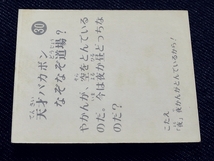 80
天才バカボン
なぞなぞ道場?
やかんが、空をとんでいる
のだ。今は夜か昼どっちな
のだ?
こたえ
「夜」夜かんがとんでいるから!